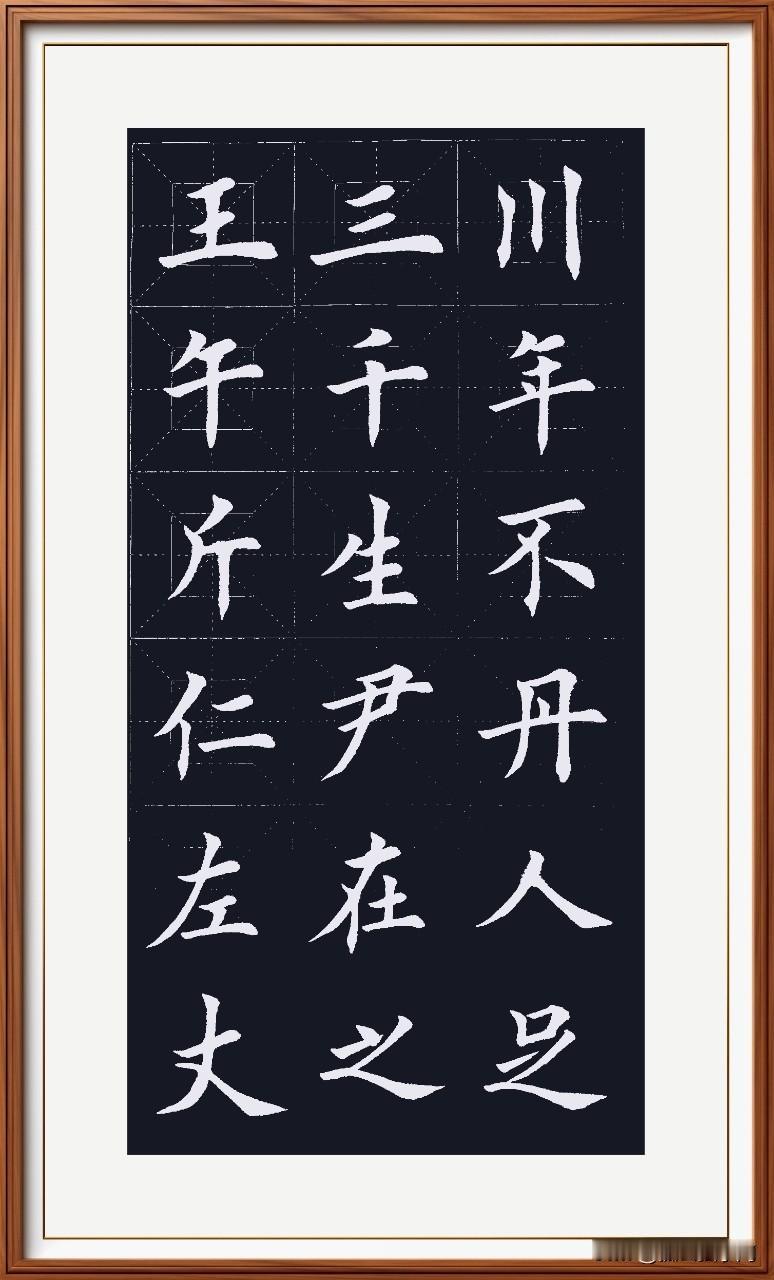 川年不丹人足
三千生尹在之
王午斤仁左丈